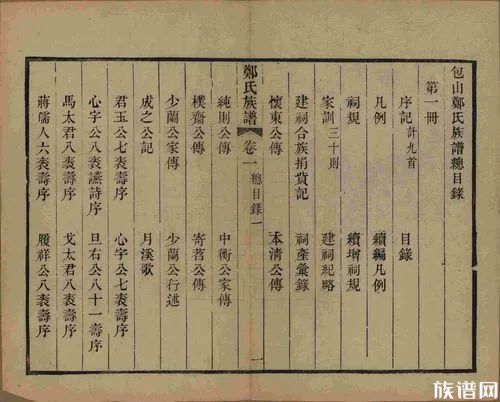 包山鄭氏族譜總目錄
第一冊
序記計九首 目錄
凡例 續編凡例
祠規 續增祠規
家訓三十則 建祠紀略
建祠合族捐貲記 祠產彙錄
懷東公傳 本清公傳
鄭氏族譜 卷一 總目錄 一
純則公傳 中衡公家傳
樸齋公傳 寄菴公傳
少蘭公家傳 少蘭公行述
成之公記 月溪歌
君玉公七袠壽序 心字公七袠壽序
心字公八袠讌詩序 旦右公八十一壽序
馬太君八袠壽序 戈太君八袠壽序
蔣孺人六袠壽序 履祥公八袠壽序
一
族谱网